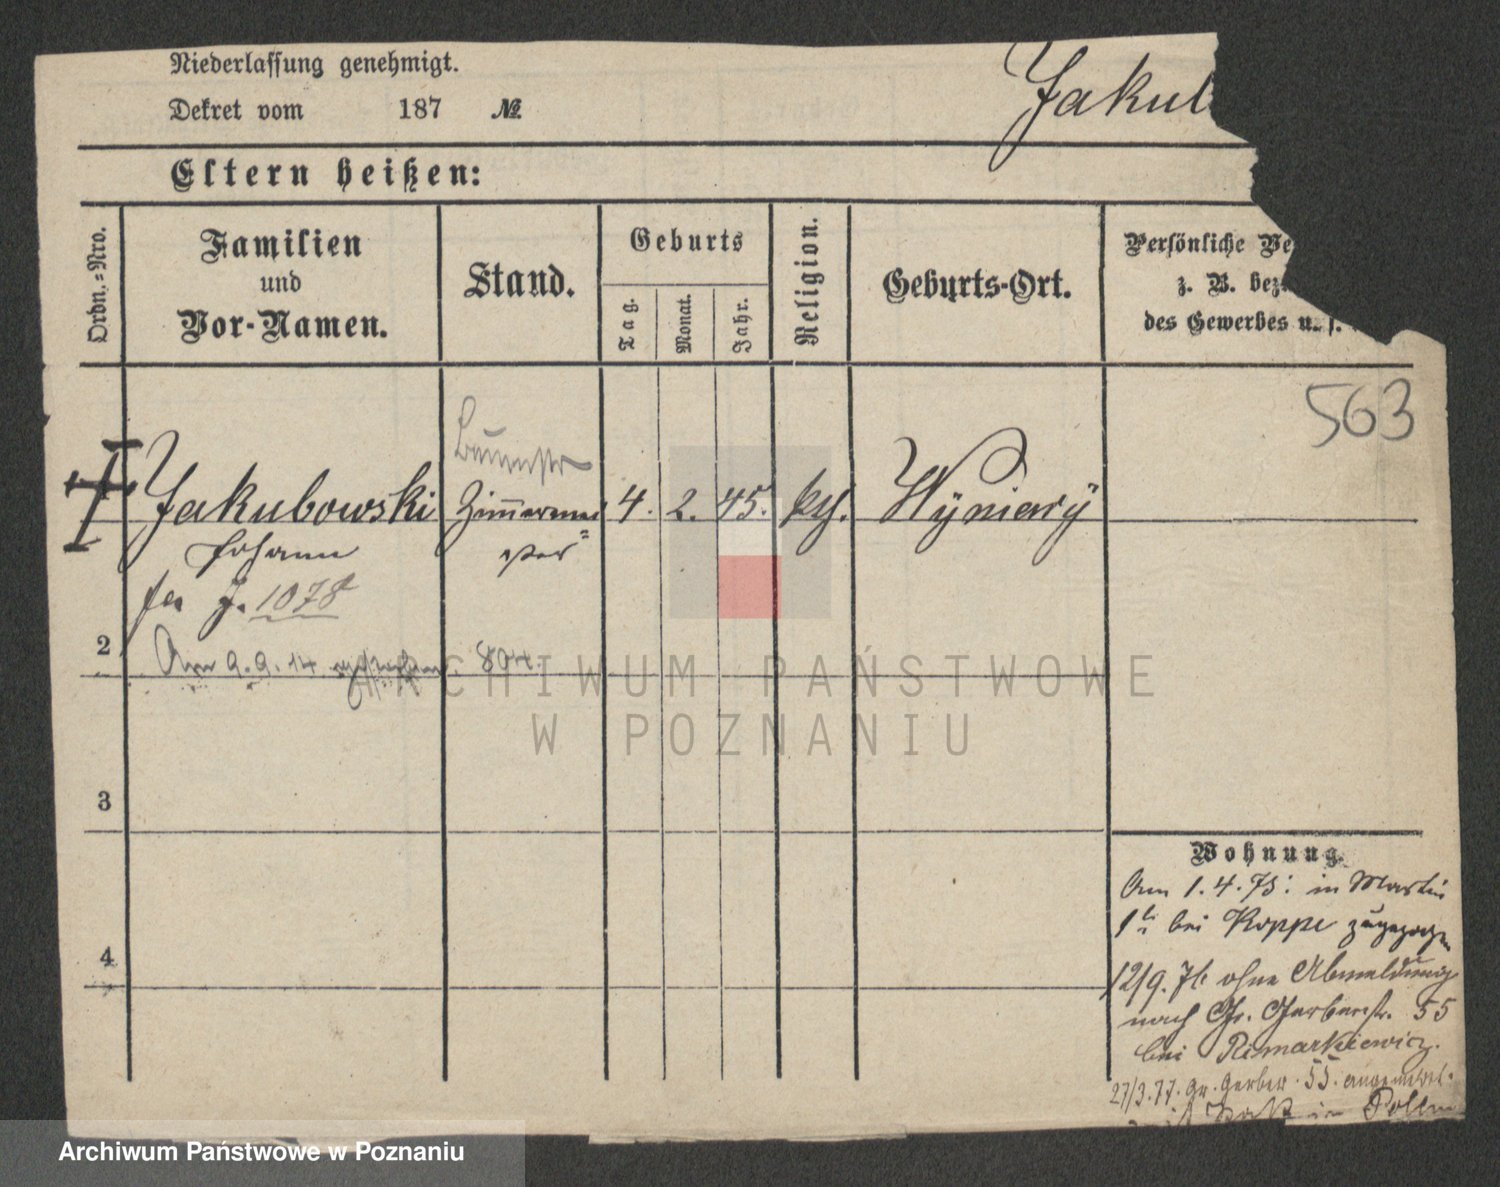 Niederlassung genehmigt.
Dekret vom 187 №
Jakub
Eltern heißen:
Ordn.=Nro.
Familien
und
Vor-Namen.
Stand.
Geburts
Tag.
Monat.
Jahr.
Religion.
Geburts-Ort.
Persönliche Ve
z. B. bez
des Gewerbes u. s.
563
Jakubowski
Johann
Zimmerme
ster
4. 2. 45. kth.
J. 1078
2
Am 9.9.14 804.
3
4
Wohnung.
Am 1.4.75: in Martin
bei Koppe zugezogen
12/9. 76 ohne Abmeldung
nach Gr. Gerberstr. 55
bei Rimarkiewicz.
27/3.77. Gr. Gerber. 55. angemeld.
in Polen
ARCHIWUM PAŃSTWOWE
W POZNANIU
Archiwum Państwowe w Poznaniu